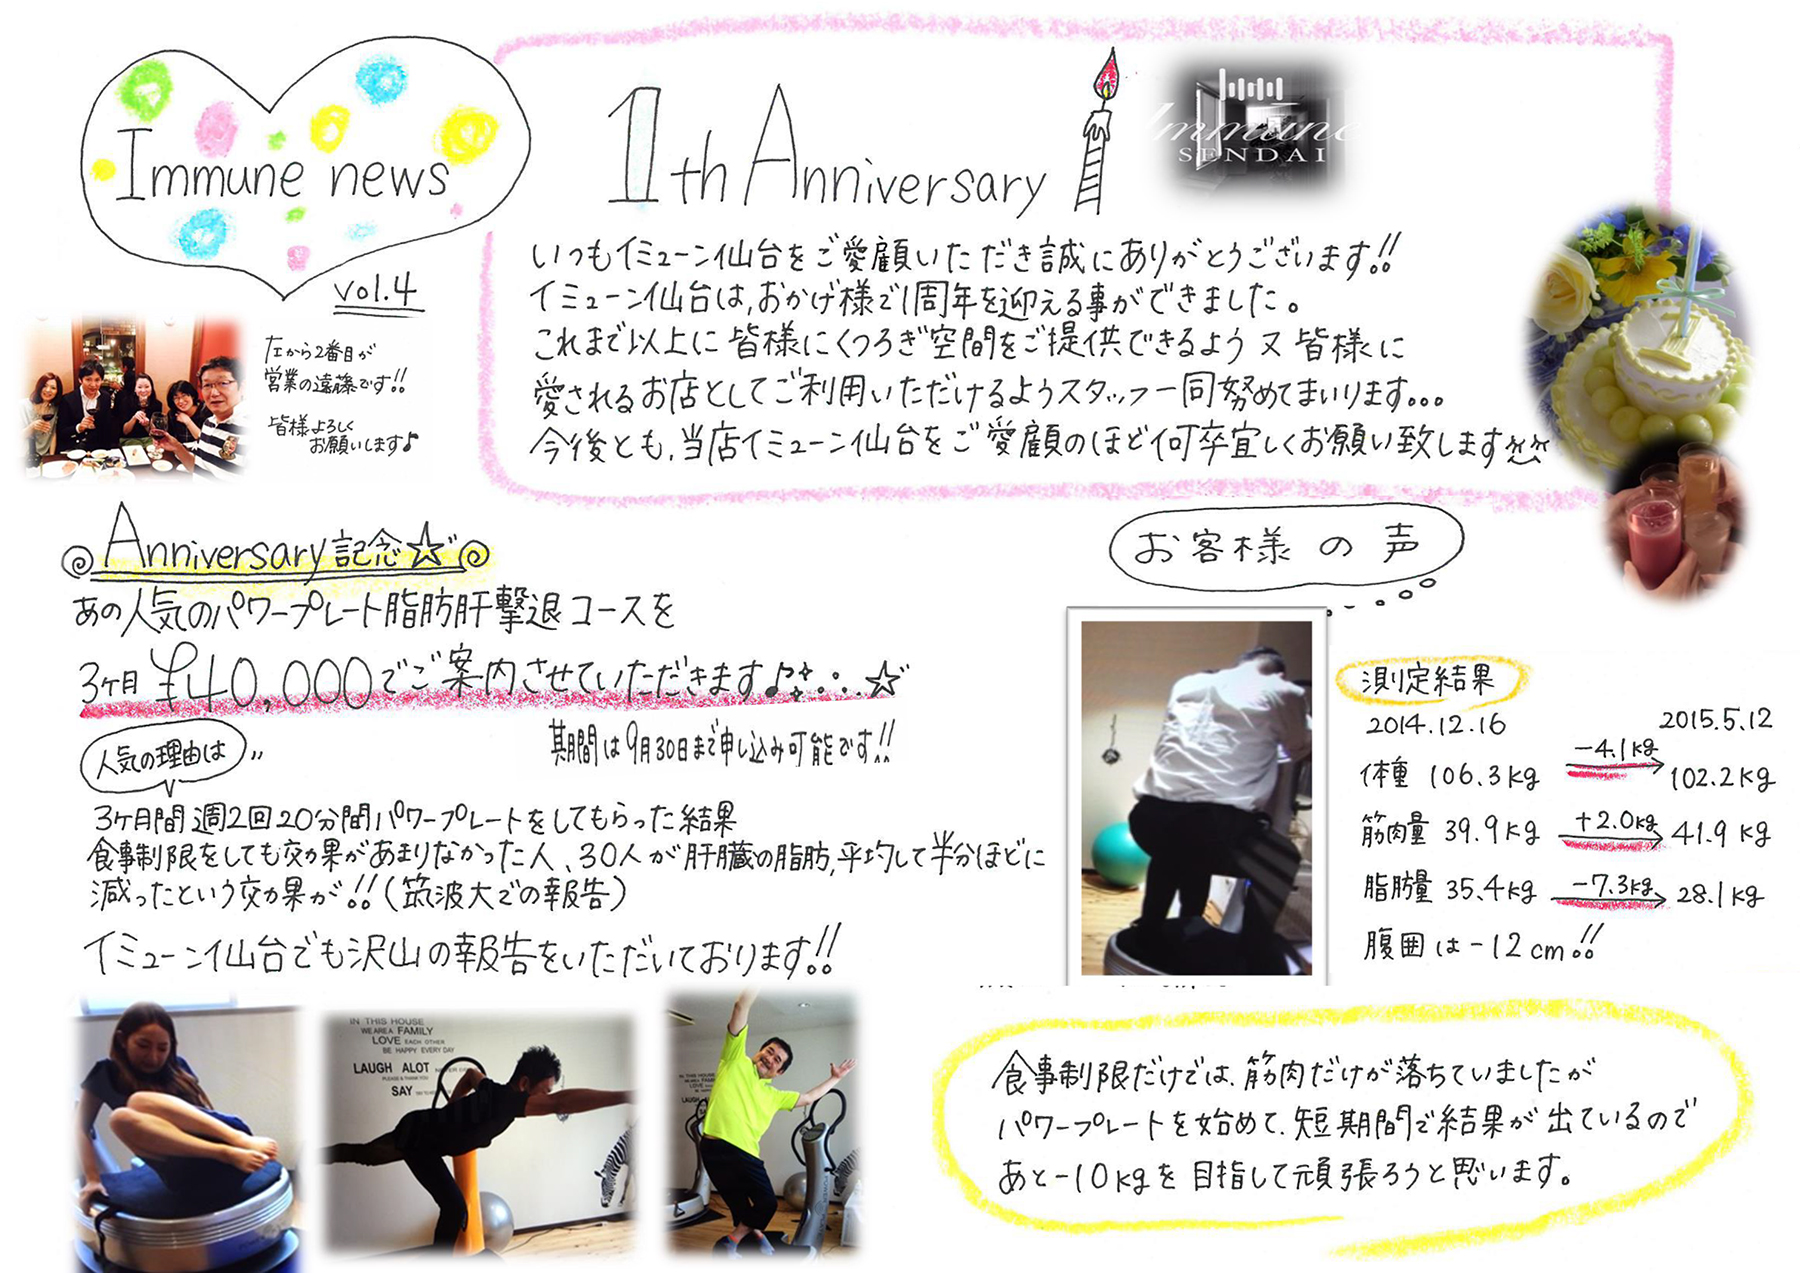 Immune news
vol.4
左から2番目が
営業の遠藤です!!
皆様よろしく
お願いします♪
1th Anniversary
Immune
SENDAI
いつもイミューン仙台をご愛顧いただき誠にありがとうございます!!
イミューン仙台は、おかげ様で1周年を迎える事ができました。
これまで以上に皆様にくつろぎ空間をご提供できるよう 又 皆様に
愛されるお店としてご利用いただけるようスタッフ一同努めてまいります...
今後とも、当店イミューン仙台をご愛顧のほど何卒宜しくお願い致します^^
Anniversary記念☆
あの人気のパワープレート脂肪肝撃退コースを
3ヶ月 ¥40,000でご案内させていただきます♪...☆
期間は9月30日まで申し込み可能です!!
人気の理由は
3ヶ月間週2回20分間パワープレートをしてもらった結果
食事制限をしても効果があまりなかった人、30人が肝臓の脂肪、平均して半分ほどに
減ったという効果が!!(筑波大での報告)
イミューン仙台でも沢山の報告をいただいております!!
お客様の声
測定結果
2014.12.16 2015.5.12
体重 106.3kg -4.1kg 102.2kg
筋肉量 39.9kg +2.0kg 41.9kg
脂肪量 35.4kg -7.3kg 28.1kg
腹囲は-12cm!!
食事制限だけでは、筋肉だけが落ちていましたが
パワープレートを始めて、短期間で結果が出ているので
あと-10kgを目指して頑張ろうと思います。
IN THIS HOUSE
WE ARE A FAMILY
LOVE EACH OTHER
BE HAPPY EVERY DAY
LAUGH ALOT
PLEASE & THANK YOU
SAY
IN THIS HOUSE